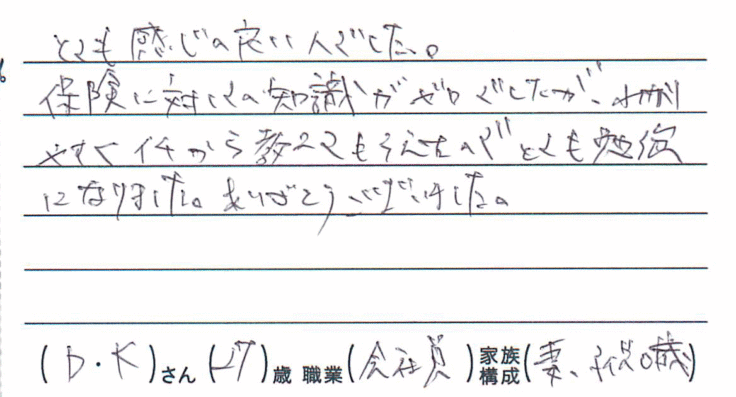 とても感じの良い人でした。
保険に対しての知識がゼロでしたが、わかり
やすくイチから教えてもらえたのでとても勉強
になりました。ありがとうございました。
(D・K)さん(27)歳 職業(会社員)家族構成(妻、子供0歳)